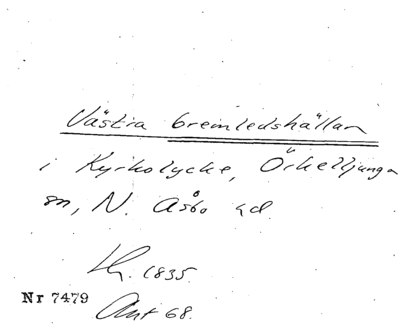 Västra Gremledshällan
i Kyrkolycke, Örkelljunga
sn, N. Åsbo hd.
Kr. 1835.
Nr 7479
Ant 68.